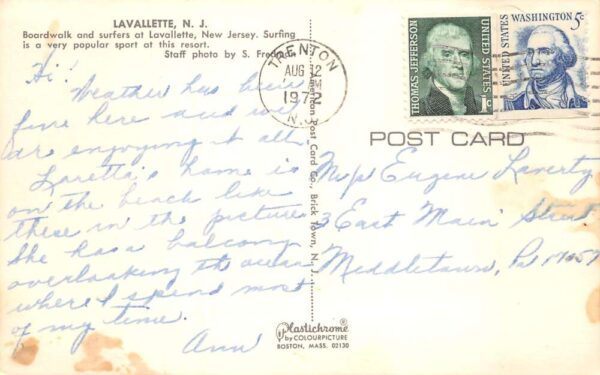 LAVALLETTE, N. J.
Boardwalk and surfers at Lavallette, New Jersey. Surfing
is a very popular sport at this resort.
Staff photo by S. Fredman
Hi!
Weather has been
fine here and we
are enjoying it all.
Loretta's home is
on the beach like
these in the picture
She has a balcony
overlooking the ocean
where I spend most
of my time.
Ann
TRENTON
AUG 12
PM
1972
N.J.
THOMAS JEFFERSON
UNITED STATES
1c
UNITED STATES
WASHINGTON 5c
POST CARD
Post Card Co., Brick Town, N. J.
M/s Eugene Laverty
3 East Main Street
Middletown, Pa 17057
Plastichrome®
by COLOURPICTURE
BOSTON, MASS. 02130